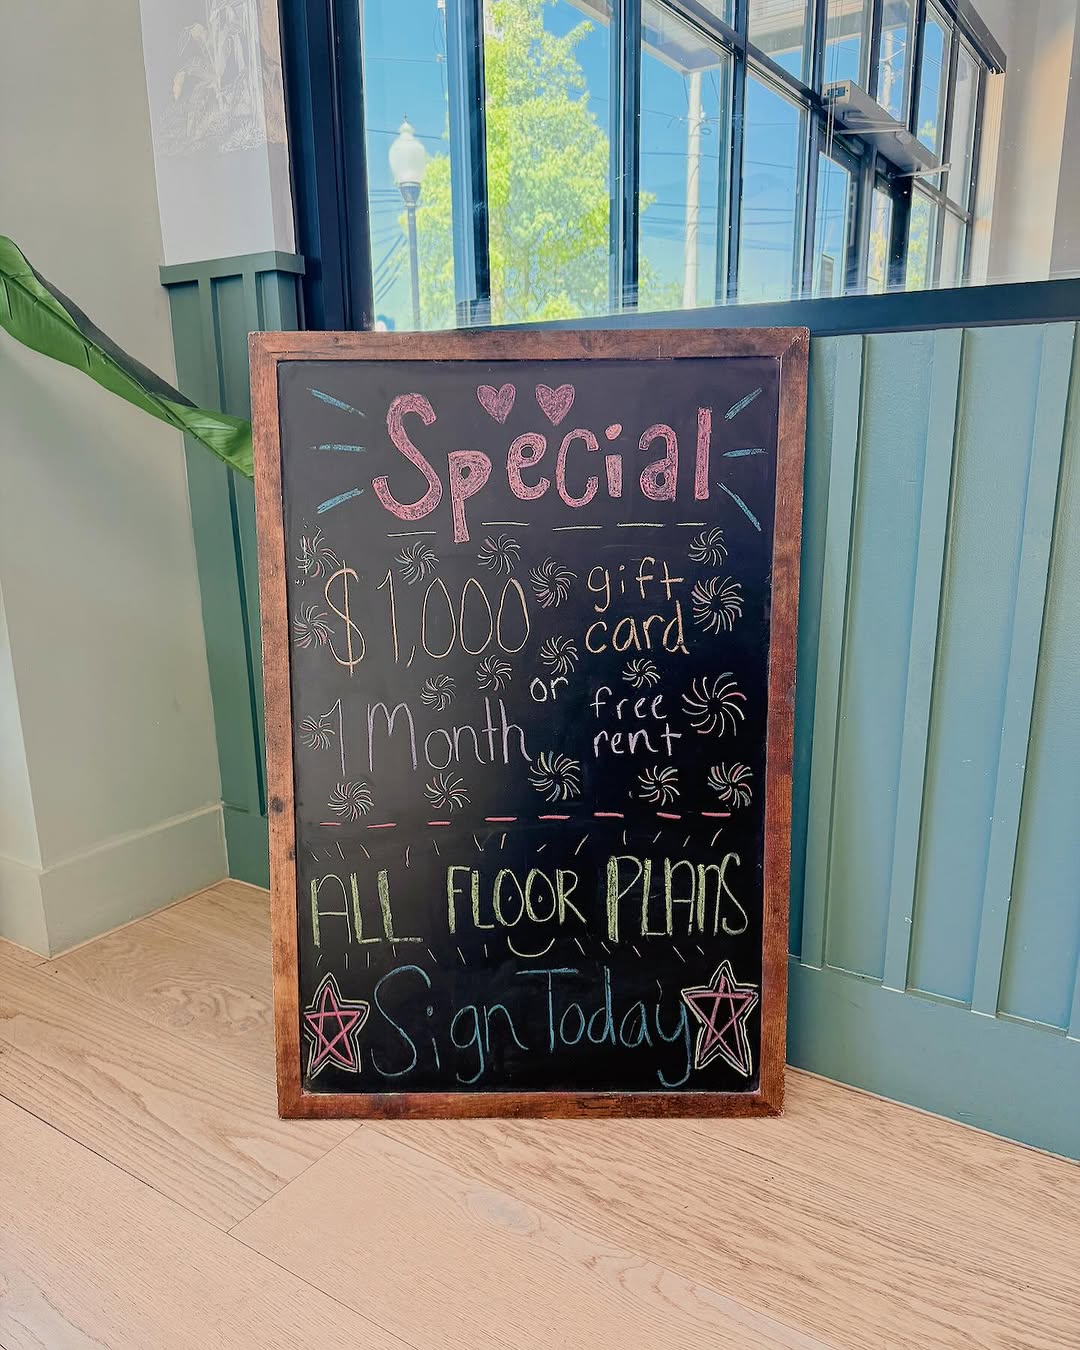 Special
$1,000 gift card
or
1 Month free rent
ALL FLOOR PLANS
Sign Today